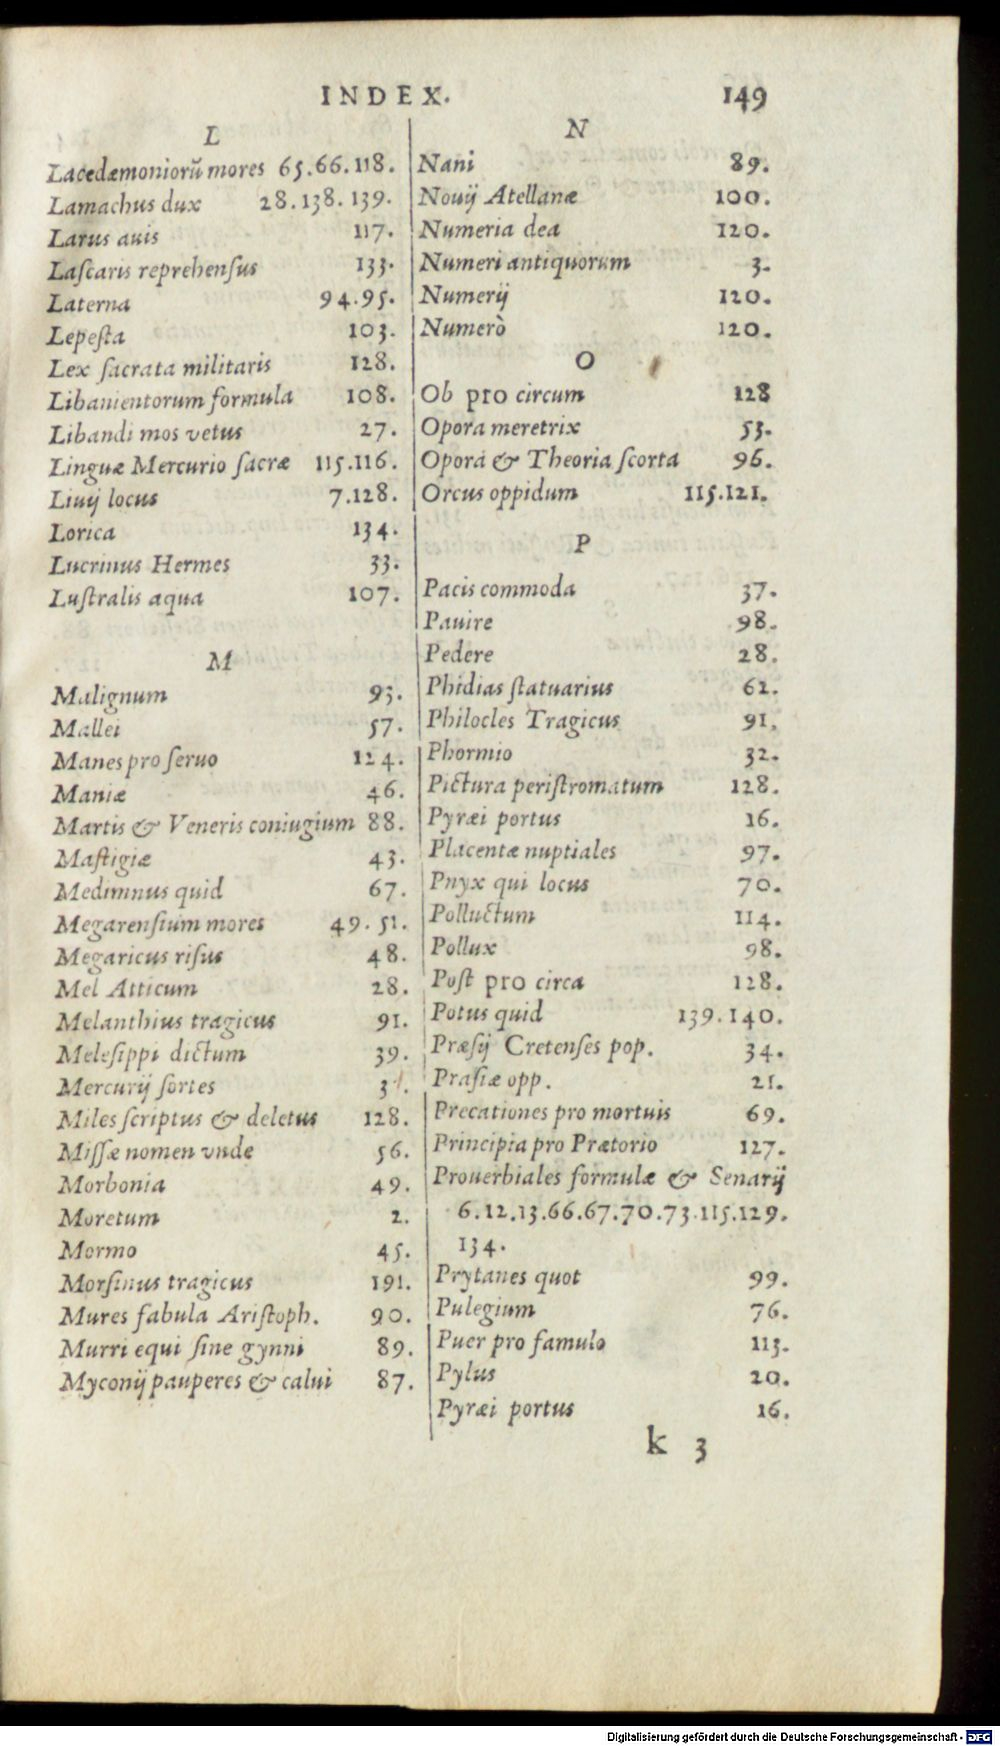 INDEX. 149
L
Lacedæmoniorũ mores 65.66.118.
Lamachus dux 28.138.139.
Larus auis 117.
Laſcaris reprehenſus 133.
Laterna 94.95.
Lepeſta 103.
Lex ſacrata militaris 128.
Libanientorum formula 108.
Libandi mos vetus 27.
Linguæ Mercurio ſacræ 115.116.
Liuij locus 7.128.
Lorica 134.
Lucrinus Hermes 33.
Luſtralis aqua 107.
M
Malignum 93.
Mallei 57.
Manes pro ſeruo 124.
Maniæ 46.
Martis & Veneris coniugium 88.
Maſtigiæ 43.
Medimnus quid 67.
Megarenſium mores 49.51.
Megaricus riſus 48.
Mel Atticum 28.
Melanthius tragicus 91.
Meleſippi dictum 39.
Mercurij ſortes
Miles ſcriptus & deletus 128.
Miſſæ nomen vnde 56.
Morbonia 49.
Moretum 2.
Mormo 45.
Morſinus tragicus 191.
Mures fabula Ariſtoph. 90.
Murri equi ſine gynni 89.
Myconij pauperes & calui 87.
N
Nani 89.
Nouij Atellanæ 100.
Numeria dea 120.
Numeri antiquorum 3.
Numerij 120.
Numerò 120.
O
Ob pro circum 128
Opora meretrix 53.
Opora & Theoria ſcorta 96.
Orcus oppidum 115.121.
P
Pacis commoda 37.
Pauire 98.
Pedere 28.
Phidias ſtatuarius 62.
Philocles Tragicus 91.
Phormio 32.
Pictura periſtromatum 128.
Pyræi portus 16.
Placentæ nuptiales 97.
Pnyx qui locus 70.
Polluctum 114.
Pollux 98.
Poſt pro circa 128.
Potus quid 139.140.
Præſij Cretenſes pop. 34.
Praſiæ opp. 21.
Precationes pro mortuis 69.
Principia pro Prætorio 127.
Prouerbiales formulæ & Senarij
6.12.13.66.67.70.73.115.129.
134.
Prytanes quot 99.
Pulegium 76.
Puer pro famulo 113.
Pylus 20.
Pyræi portus 16.
k 3
Digitalisierung gefördert durch die Deutsche Forschungsgemeinschaft - DFG